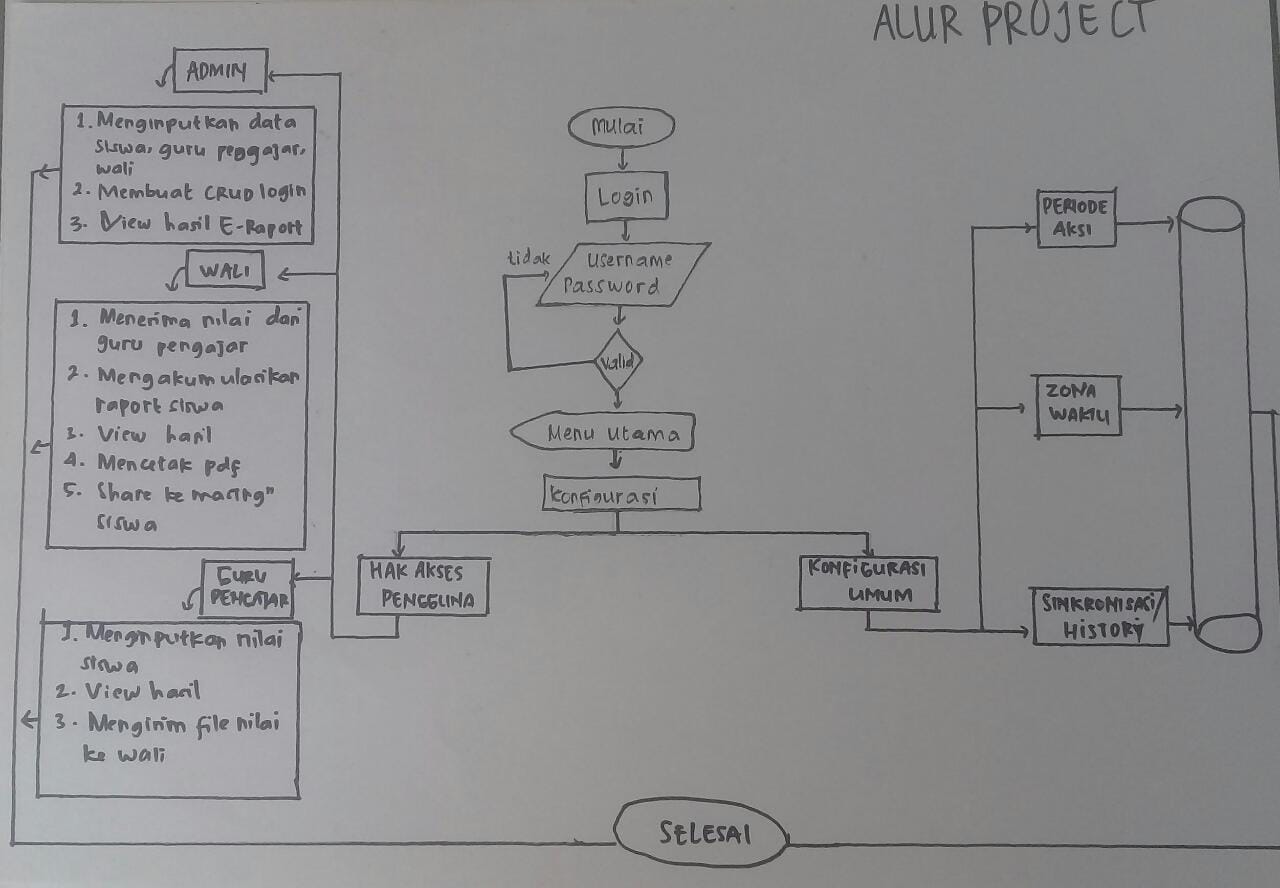 ALUR PROJECT
ADMIN
1. Menginputkan data
siswa, guru pengajar,
wali
2. Membuat CRUD login
3. View hasil E-Raport
WALI
1. Menerima nilai dari
guru pengajar
2. Mengakumulasikan
raport siswa
3. View hasil
4. Mencetak pdf
5. Share ke masing"
siswa
GURU
PENGAJAR
1. Menginputkan nilai
siswa
2. View hasil
3. Mengirim file nilai
ke wali
Mulai
Login
Username
Password
tidak
Valid
Menu Utama
Konfigurasi
HAK AKSES
PENGGUNA
KONFIGURASI
UMUM
PERIODE
AKSI
ZONA
WAKTU
SINKRONISASI/
HISTORY
SELESAI